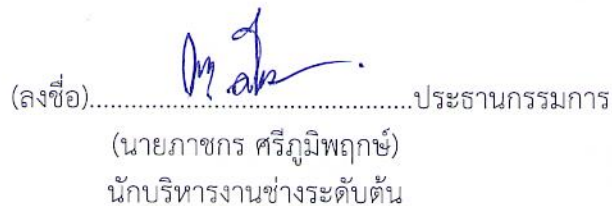 (ลงชื่อ)................................................ประธานกรรมการ
(นายภาชกร ศรีภูมิพฤกษ์)
นักบริหารงานช่างระดับต้น